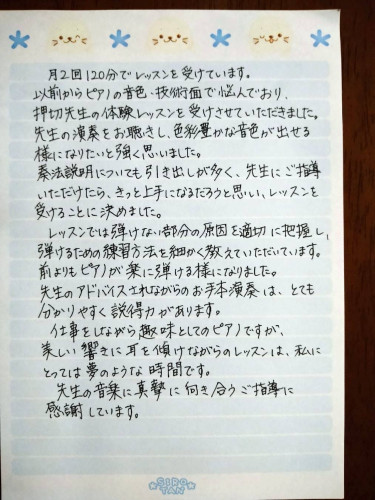 月2回120分でレッスンを受けています。
以前からピアノの音色・技術面で悩んでおり、
押切先生の体験レッスンを受けさせていただきました。
先生の演奏をお聴きし、色彩豊かな音色が出せる
様になりたいと強く思いました。
奏法説明についても引き出しが多く、先生にご指導
いただけたら、きっと上手になるだろうと思い、レッスンを
受けることに決めました。
レッスンでは弾けない部分の原因を適切に把握し、
弾けるための練習方法を細かく教えていただいています。
前よりもピアノが楽に弾ける様になりました。
先生のアドバイスされながらのお手本演奏は、とても
分かりやすく説得力があります。
仕事をしながら趣味としてのピアノですが、
美しい響きに耳を傾けながらのレッスンは、私に
とっては夢のような時間です。
先生の音楽に真摯に向き合うご指導に
感謝しています。
SIRO
TAN